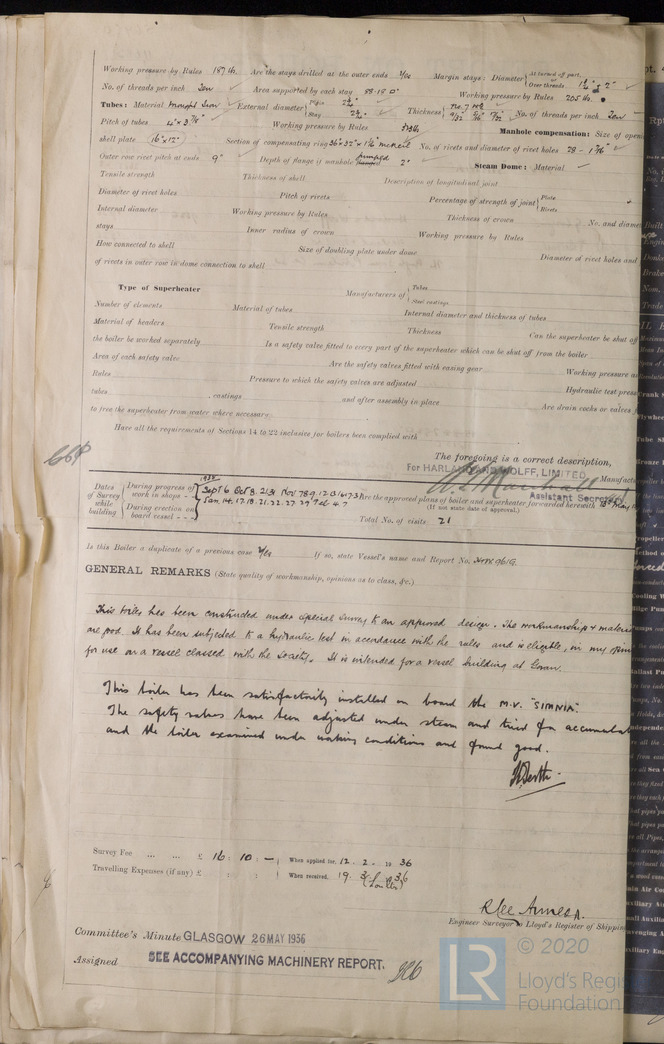 Working pressure by Rules 187 lb. Are the stays drilled at the outer ends Yes Margin stays: Diameter { At turned off part, Over threads 1 3/4" & 2"
No. of threads per inch Ten Area supported by each stay 88.18 □" Working pressure by Rules 205 lb.
Tubes: Material Iron External diameter { Plain Stay 2 3/4" Thickness { No. 7 9/32 5/16 No. of threads per inch Ten
Pitch of tubes 4" x 3 7/8" Working pressure by Rules Manhole compensation: Size of open
shell plate 16" x 12" Section of compensating ring No. of rivets and diameter of rivet holes 28 - 1 3/16"
Outer row rivet pitch at ends 9" Depth of flange if manhole flanged 2" Steam Dome: Material
Tensile strength Thickness of shell Description of longitudinal joint
Diameter of rivet holes Pitch of rivets Percentage of strength of joint { Plate Rivets
Internal diameter Working pressure by Rules Thickness of crown No. and diamet
stays Inner radius of crown Working pressure by Rules
How connected to shell Size of doubling plate under dome Diameter of rivet holes and
of rivets in outer row in dome connection to shell
Type of Superheater Manufacturers of { Tubes Steel castings
Number of elements Material of tubes Internal diameter and thickness of tubes
Material of headers Tensile strength Thickness Can the superheater be shut off
the boiler be worked separately Is a safety valve fitted to every part of the superheater which can be shut off from the boiler
Area of each safety valve Are the safety valves fitted with easing gear Working pressure as
Rules Pressure to which the safety valves are adjusted Hydraulic test press
tubes castings and after assembly in place Are drain cocks or valves f
to free the superheater from water where necessary
Have all the requirements of Sections 14 to 22 inclusive for boilers been complied with
The foregoing is a correct description,
For HARLAND AND WOLFF, LIMITED Manufact
Assistant Secretary
Dates of Survey while building { During progress of work in shops - - { 1935 Sept 6 Oct 8. 21.31 Nov 7.8.9. 12.13.16.17.31 Are the approved plans of boiler and superheater forwarded herewith
During erection on board vessel - - - Jan 14. 17. 18. 21. 22. 27. 29 Feb 4. 7 (If not state date of approval.)
Total No. of visits 21
Is this Boiler a duplicate of a previous case Yes If so, state Vessel's name and Report No.
GENERAL REMARKS (State quality of workmanship, opinions as to class, &c.)
This boiler has been constructed under special survey to an approved design. The workmanship & materia
are good. It has been subjected to a hydraulic test in accordance with the rules and is eligible, in my opin
for use on a vessel classed with the Society. It is intended for a vessel building at Govan.
This boiler has been satisfactorily installed on board the M.V. "SIMNIA".
The safety valves have been adjusted under steam and tried for accumulat
and the boiler examined under working conditions and found good.
Survey Fee ... ... £ 16 : 10 : - When applied for, 12. 2. 19 36
Travelling Expenses (if any) £ : : When received, 19. 3. 1936
Engineer Surveyor to Lloyd's Register of Shippin
Committee's Minute GLASGOW 26 MAY 1936
Assigned SEE ACCOMPANYING MACHINERY REPORT.
LR © 2020
Lloyd's Regis
Foundation